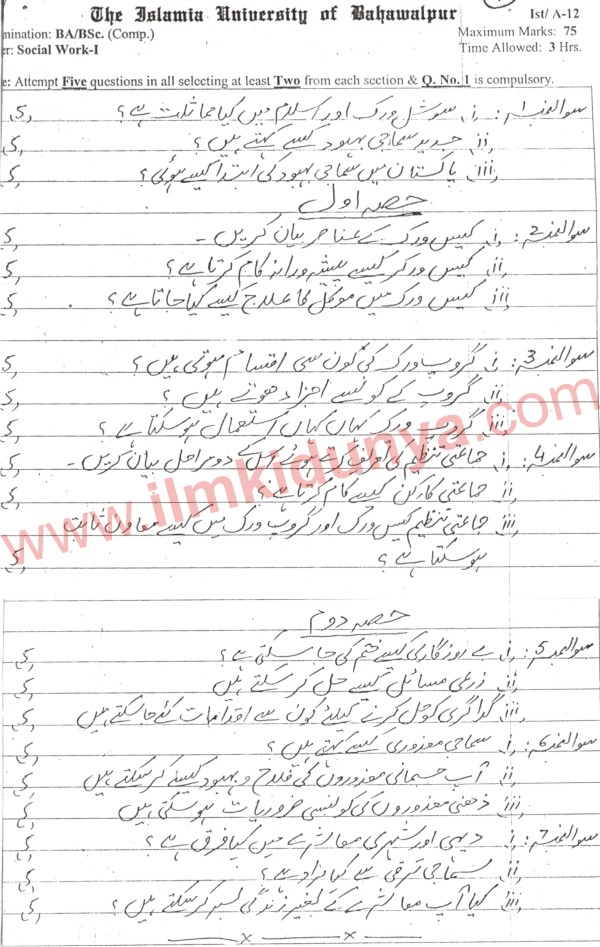 The Islamia University of Bahawalpur Ist/ A-12
mination: BA/BSc. (Comp.) Maximum Marks: 75
er: Social Work-I Time Allowed: 3 Hrs.
e: Attempt Five questions in all selecting at least Two from each section & Q. No. 1 is compulsory.
سوال نمبر1: i سوشل ورک اور اسلام میں کیا مماثلت ہے؟ 5
ii جدید سماجی بہبود کسے کہتے ہیں؟ 5
iii پاکستان میں سماجی بہبود کی ابتدا کیسے ہوئی؟ 5
حصہ اول
سوال نمبر2: i کیس ورک کے عناصر بیان کریں۔ 5
ii کیس ورکر کیسے پیشہ ورانہ کام کرتا ہے؟ 5
iii کیس ورک میں موکل کا علاج کیسے کیا جاتا ہے؟ 5
سوال نمبر3: i گروپ ورک کی کون سی اقسام ہوتی ہیں؟ 5
ii گروپ کے کونسے اجزاء ہوتے ہیں؟ 5
iii گروپ ورک کہاں کہاں استعمال ہو سکتا ہے؟ 5
سوال نمبر4: i جماعتی تنظیم کی تعریف کرتے ہوئے اس کے دو مراحل بیان کریں۔ 5
ii جماعتی کارکن کیسے کام کرتا ہے؟ 5
iii جماعتی تنظیم کیس ورک اور گروپ ورک میں کیسے معاون ثابت
ہو سکتا ہے؟ 5
www.ilmkidunya.com
حصہ دوم
سوال نمبر5: i بے روزگاری کیسے ختم کی جا سکتی ہے؟ 5
ii زرعی مسائل کیسے حل کر سکتے ہیں 5
iii گداگری کو حل کرنے کیلئے کون سے اقدامات کئے جا سکتے ہیں 5
سوال نمبر6: i سماجی معذوری کسے کہتے ہیں؟ 5
ii آپ جسمانی معذوروں کی فلاح و بہبود کیسے کر سکتے ہیں 5
iii ذہنی معذوروں کی کونسی ضروریات ہو سکتی ہیں 5
سوال نمبر7: i دیہی اور شہری معاشرے میں کیا فرق ہے؟ 5
ii سماجی ترقی سے کیا مراد ہے؟ 5
iii کیا آپ معاشرے کے بغیر زندگی بسر کر سکتے ہیں؟ 5
x x